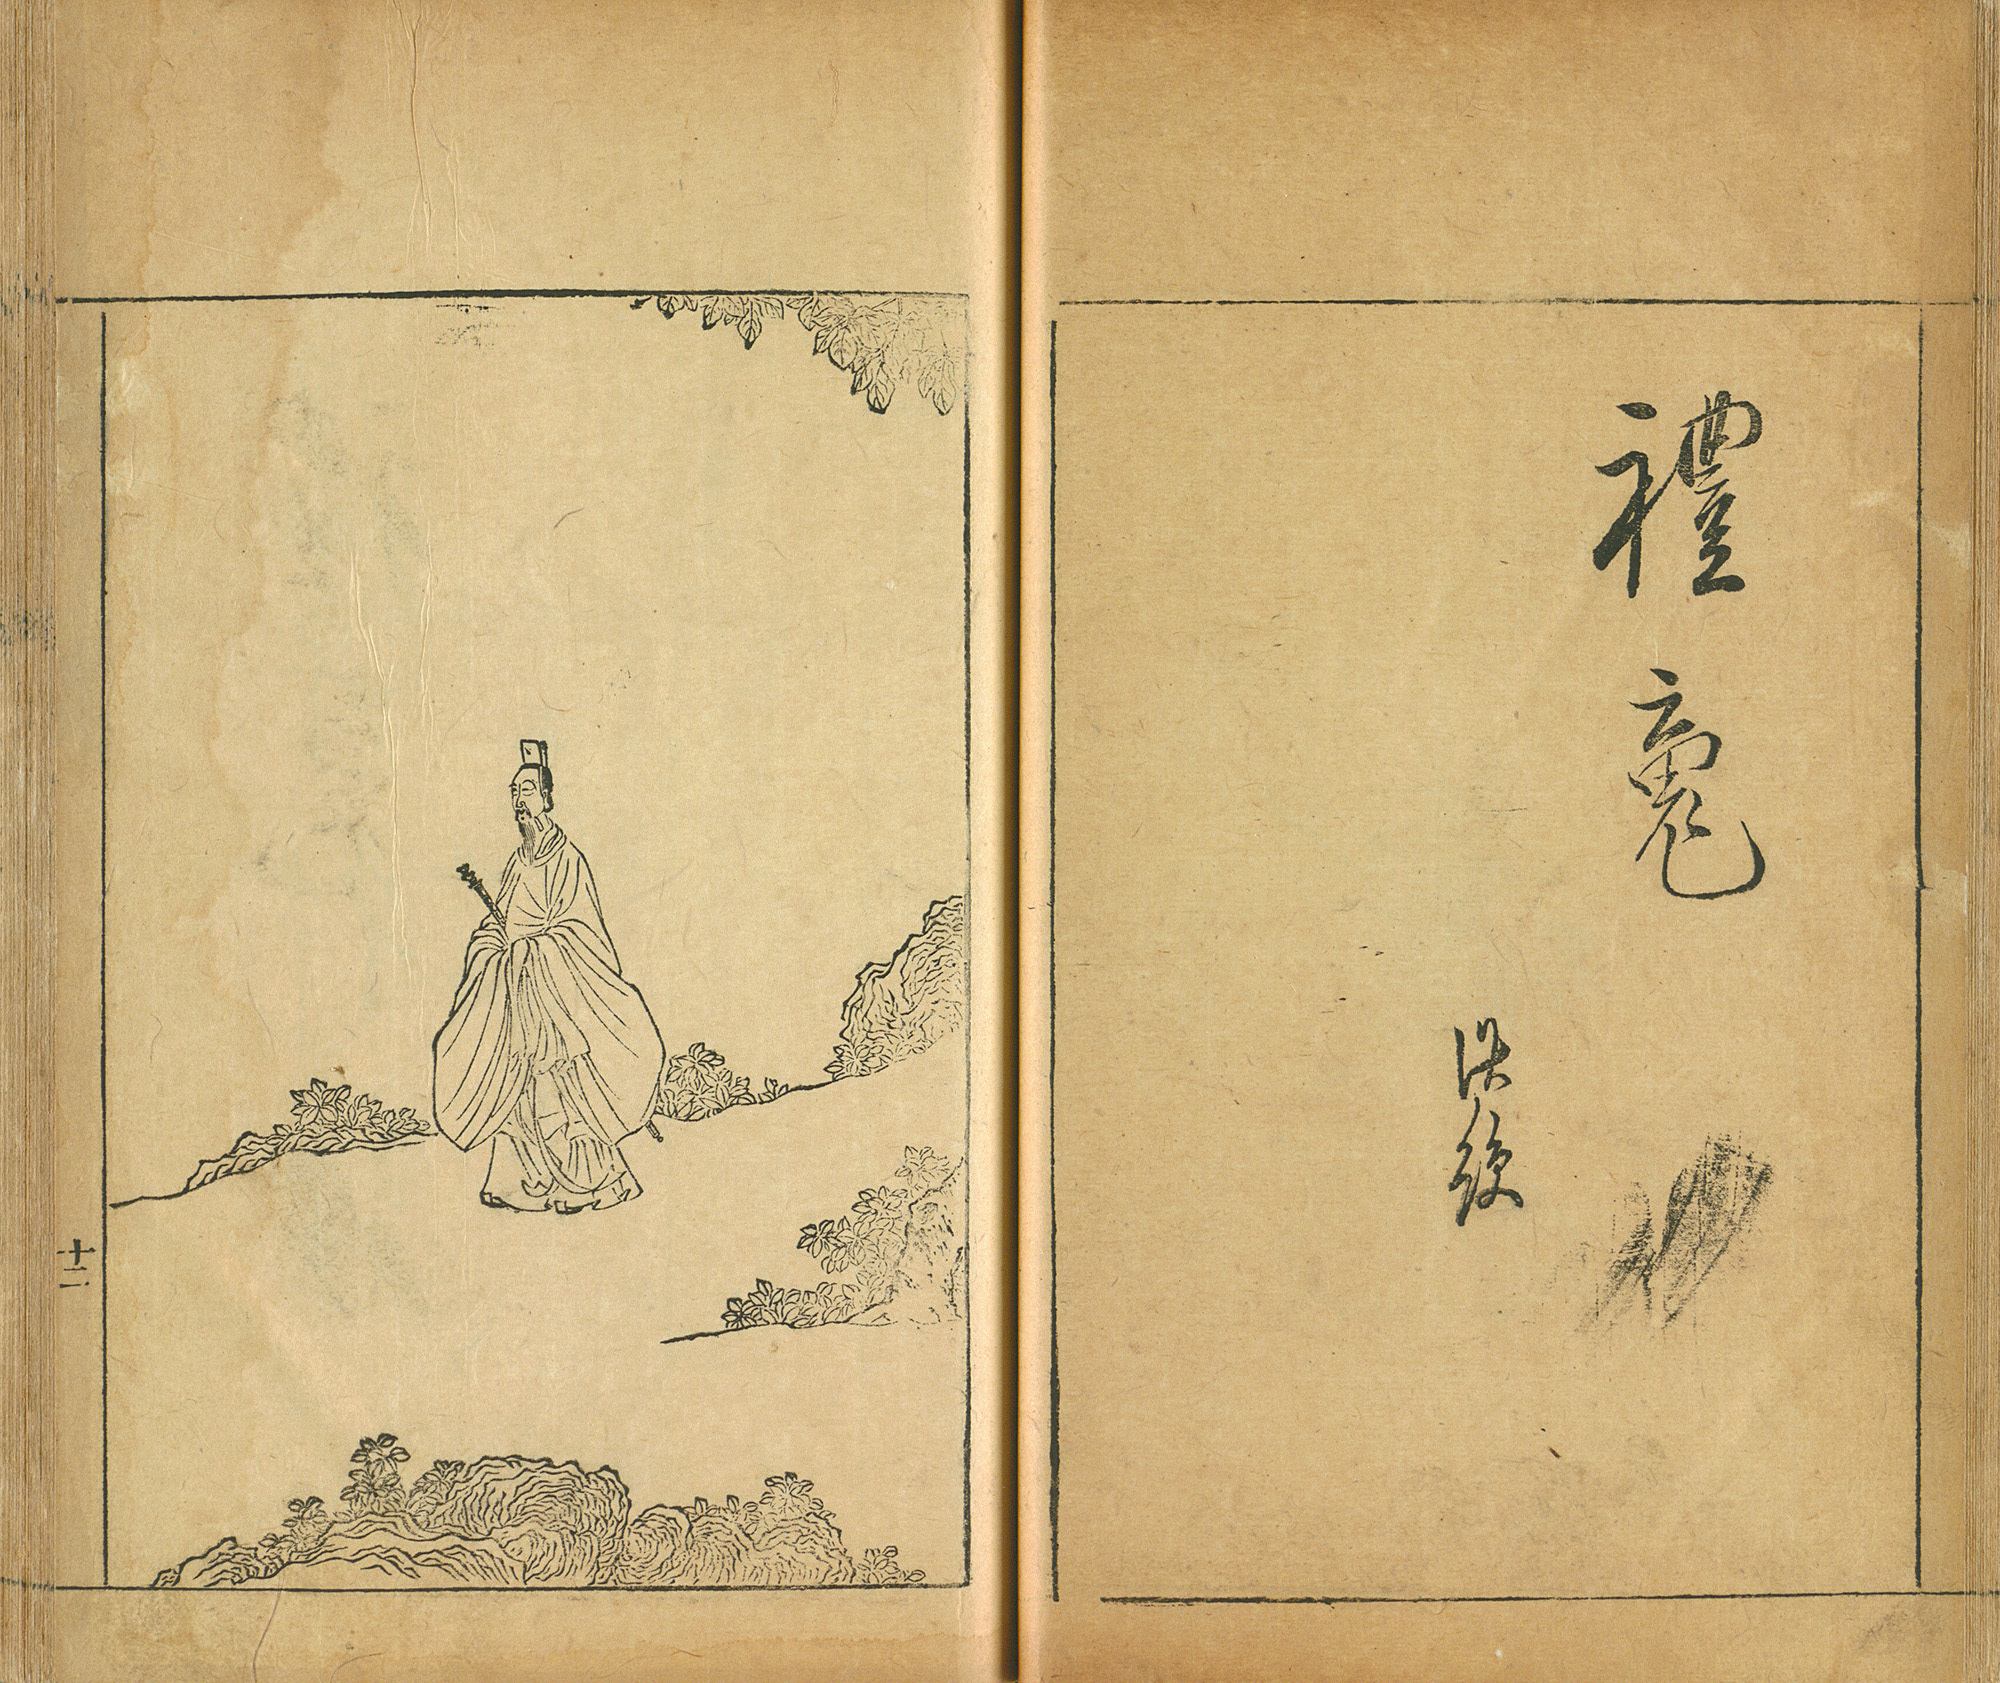 禮䰟
洪綬
十二